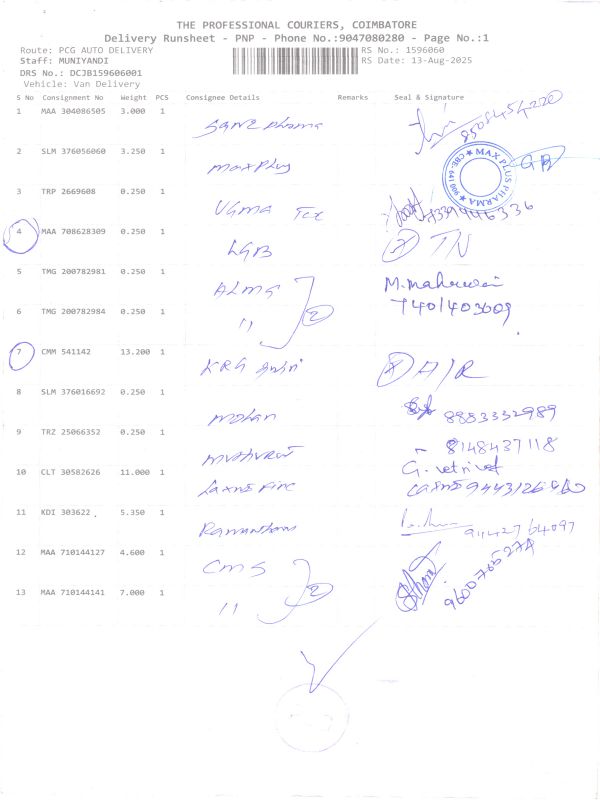 THE PROFESSIONAL COURIERS, COIMBATORE
Delivery Runsheet - PNP - Phone No.:9047080280 - Page No.:1
Route: PCG AUTO DELIVERY
RS No.: 1596060
Staff: MUNIYANDI
RS Date: 13-Aug-2025
DRS No.: DCJB159606001
Vehicle: Van Delivery
S No Consignment No Weight PCS Consignee Details Remarks Seal & Signature
1 MAA 304086505 3.000 1 Sane Pharma 8508454220
2 SLM 376056060 3.250 1 Max Plus MAX PLUS PHARMA CBE-641 006
3 TRP 2669608 0.250 1 UGMA Tex
4 MAA 708628309 0.250 1 LGB TN
5 TMG 200782981 0.250 1 ALMG 2 M.
6 TMG 200782984 0.250 1 11 7401403009
7 CMM 541142 13.200 1 KRG A/R
8 SLM 376016692 0.250 1 Mohan 8883332989
9 TRZ 25066352 0.250 1 8148437118
10 CLT 30582626 11.000 1 Laxmi Fire G. vetrivel
11 KDI 303622 5.350 1 9442764097
12 MAA 710144127 4.600 1 CMS 2
13 MAA 710144141 7.000 1 11